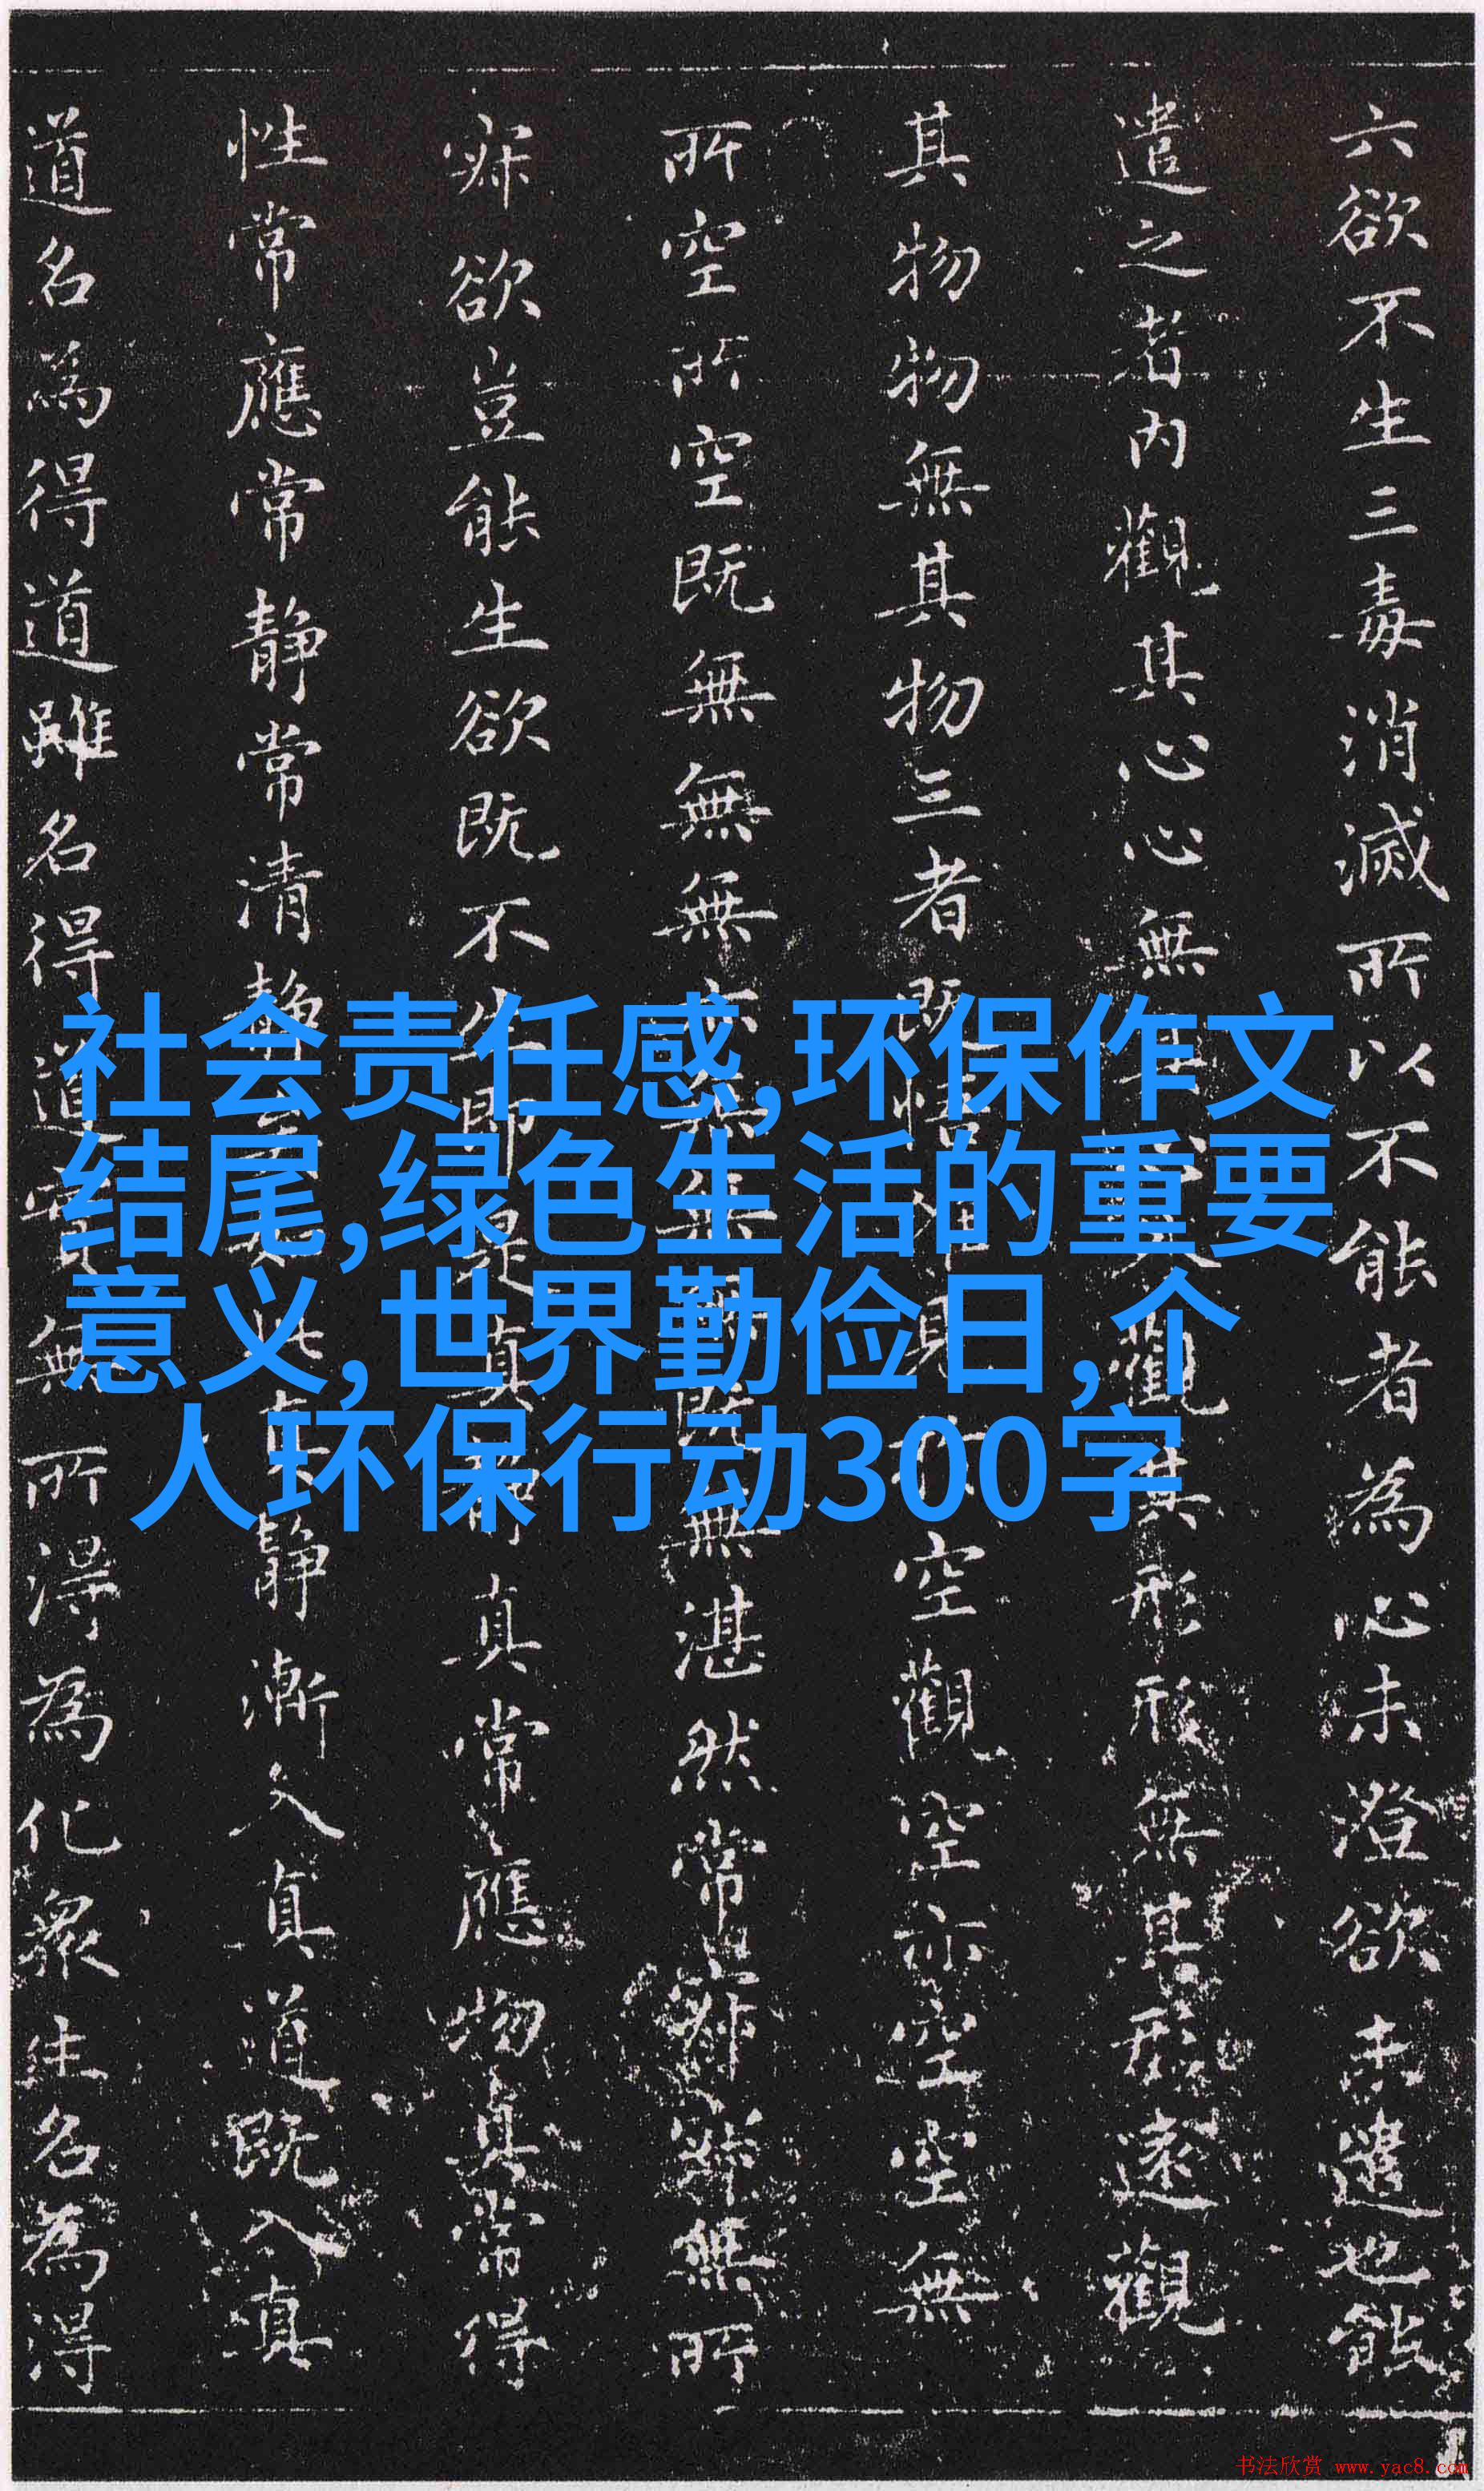 社会责任感,环保作文
结尾,绿色生活的重要
意义,世界勤俭日,个
人环保行动300字
六欲不生三毒消滅所以不能者為心未澄欲未遣也能
遣之者内觀其心心無其觀其形形無其形遠觀
其物物無其物三者既悟見空觀空亦空空無
所空所空既無無無亦無無既無湛然常寂寂無所
寂欲豈能生欲既不生即是真静真常應物真常得
性常應常静常清静静漸入真道既入真
道名為得道雖名得道實無所得為化衆生名為得
书法欣赏 www.yac8.com